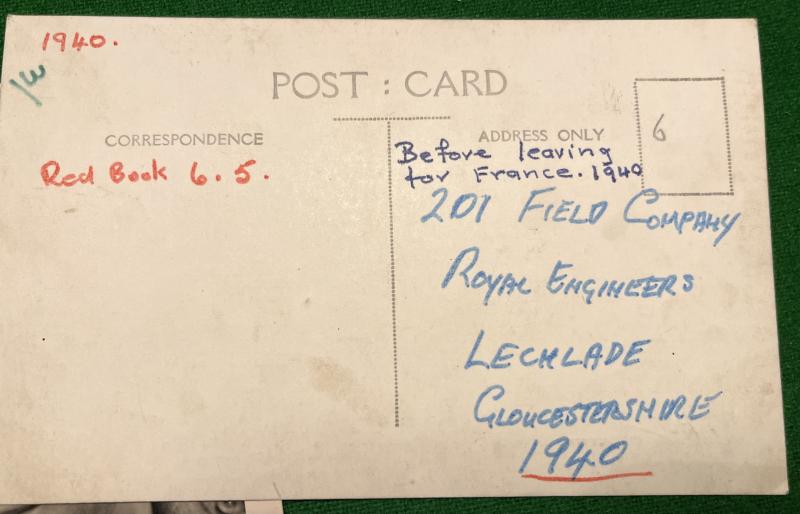 1940.
1/3
POST : CARD
CORRESPONDENCE
Red Book 6.5.
ADDRESS ONLY
6
Before leaving
for France. 1940
201 FIELD COMPANY
ROYAL ENGINEERS
LECHLADE
GLOUCESTERSHIRE
1940